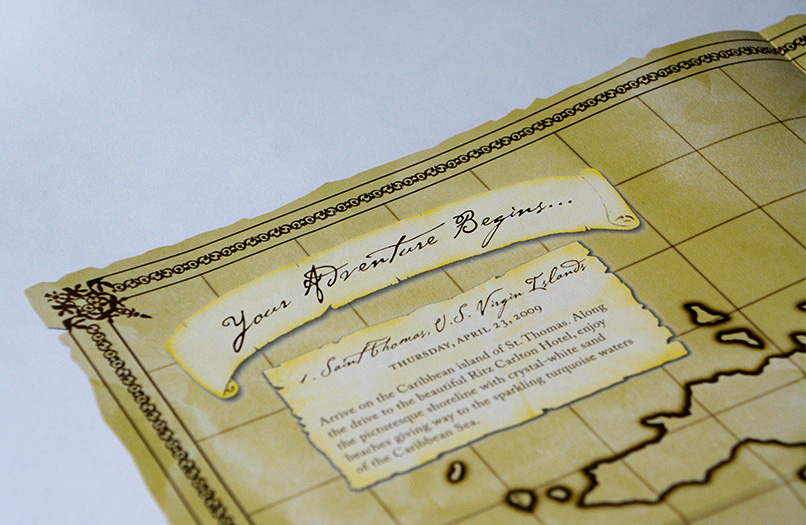 Your Adventure Begins...
1. Saint Thomas, U.S. Virgin Islands
THURSDAY, APRIL 23, 2009
Arrive on the Caribbean island of St. Thomas. Along
the drive to the beautiful Ritz Carlton Hotel, enjoy
the picturesque shoreline with crystal-white sand
beaches giving way to the sparkling turquoise waters
of the Caribbean Sea.